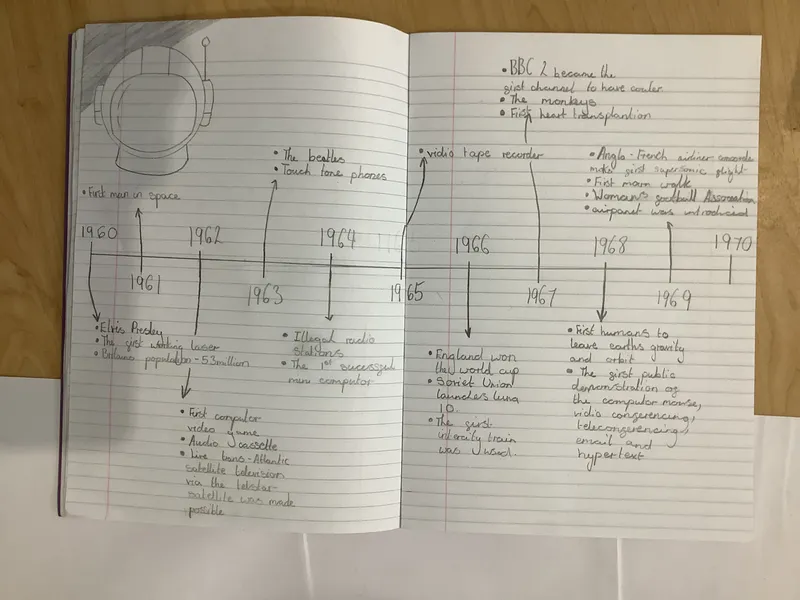 • First man in space
• The beatles
• Touch tone phones
1960
1961
1962
1963
1964
• Elvis Presley
• The girst working laser
• Britains population - 53million
• First computor
video game
• Audio cassette
• Live trans-Atlantic
satellite television
via the telstar
satellite was made
posible
• Illegal radio
stations
• The 1st sucessful
mini computor
• BBC 2 became the
girst channel to have couler
• The monkeys
• First heart transplantion
• vidio tape recorder
• Anglo-French airliner concorde
make girst supersonic glight
• First moon walk
• Woman's gootball Association
• airpanet was introduced
1965
1966
1967
1968
1969
1970
• England won
the world cup
• Soviet Union
launches luna
10.
• The girst
intercity train
was used.
• First humans to
leave earths gravity
and orbit
• The girst public
demonstration og
the computor mouse,
vidio congerencing,
telecongerencing,
email and
hypertext